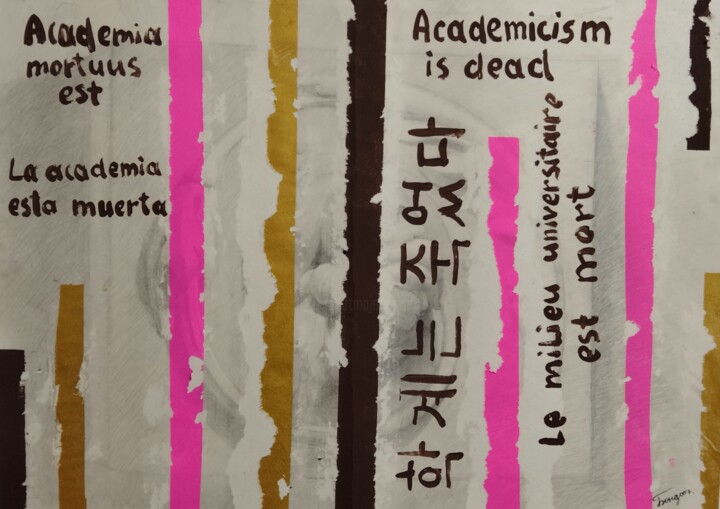 Academia
mortuus
est
La academia
esta muerta
Academicism
is dead
학계는 죽었다
Le milieu universitaire
est mort